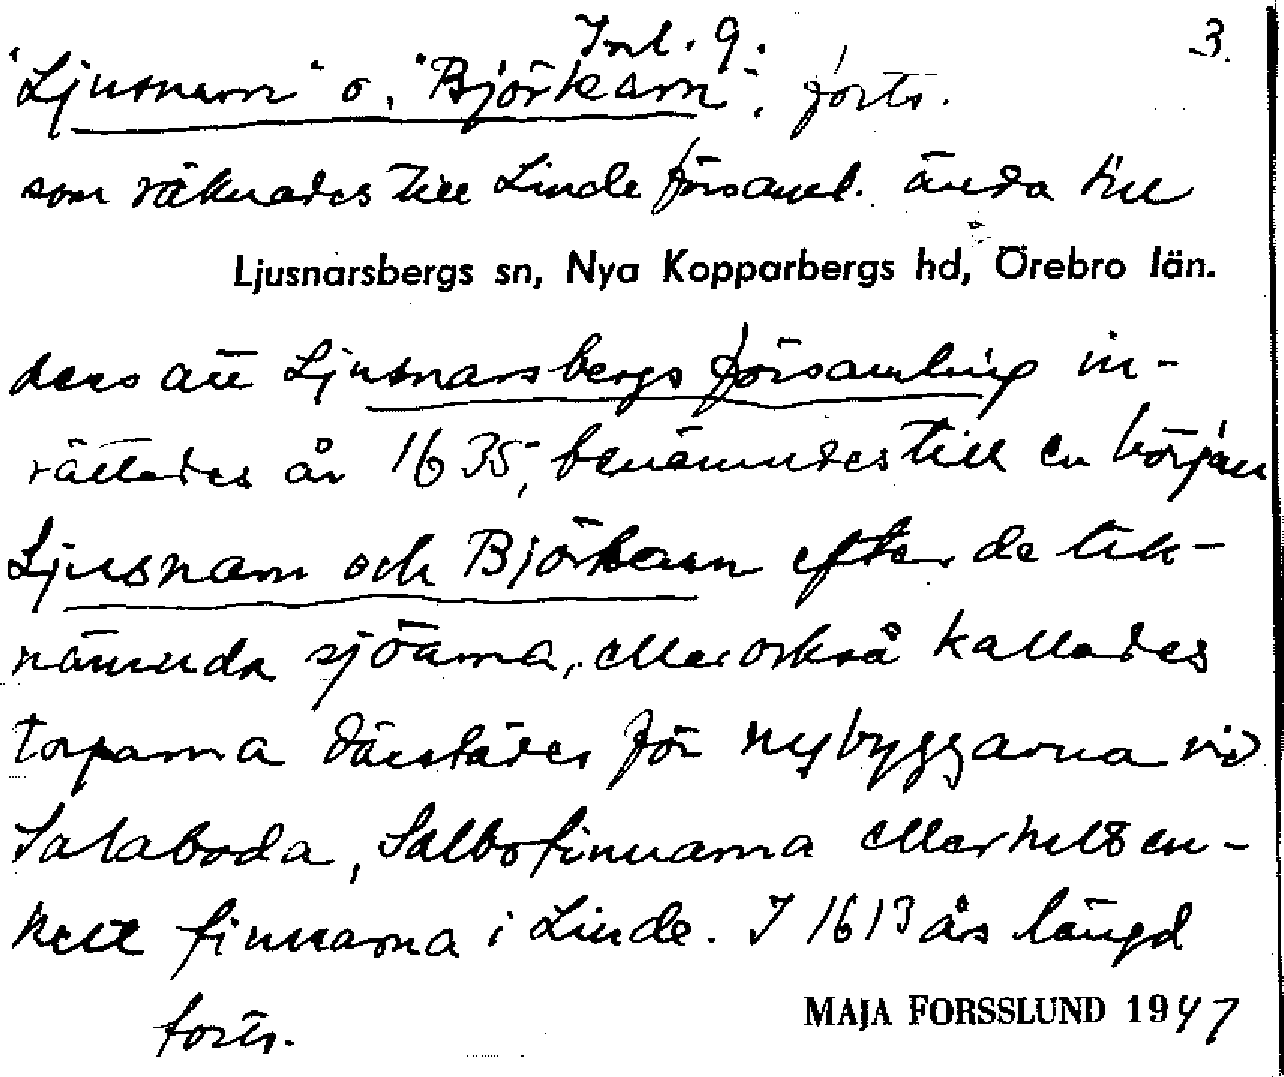 Inl. 9. 3.
"Ljusnarn" o. "Björkarn", forts.
som räknades till Linde församl. ända till
Ljusnarsbergs sn, Nya Kopparbergs hd, Örebro län.
dess att Ljusnarsbergs församling in-
rättades år 1635, benämndes till en början
Ljusnarn och Björkarn efter de lik-
nämnda sjöarna, eller också kallades
torparna därstädes för nybyggarna vid
Salaboda, Salbofinnarna eller helt en-
kelt finnarna i Linde. I 1613 års längd
forts.
MAJA FORSSLUND 1947